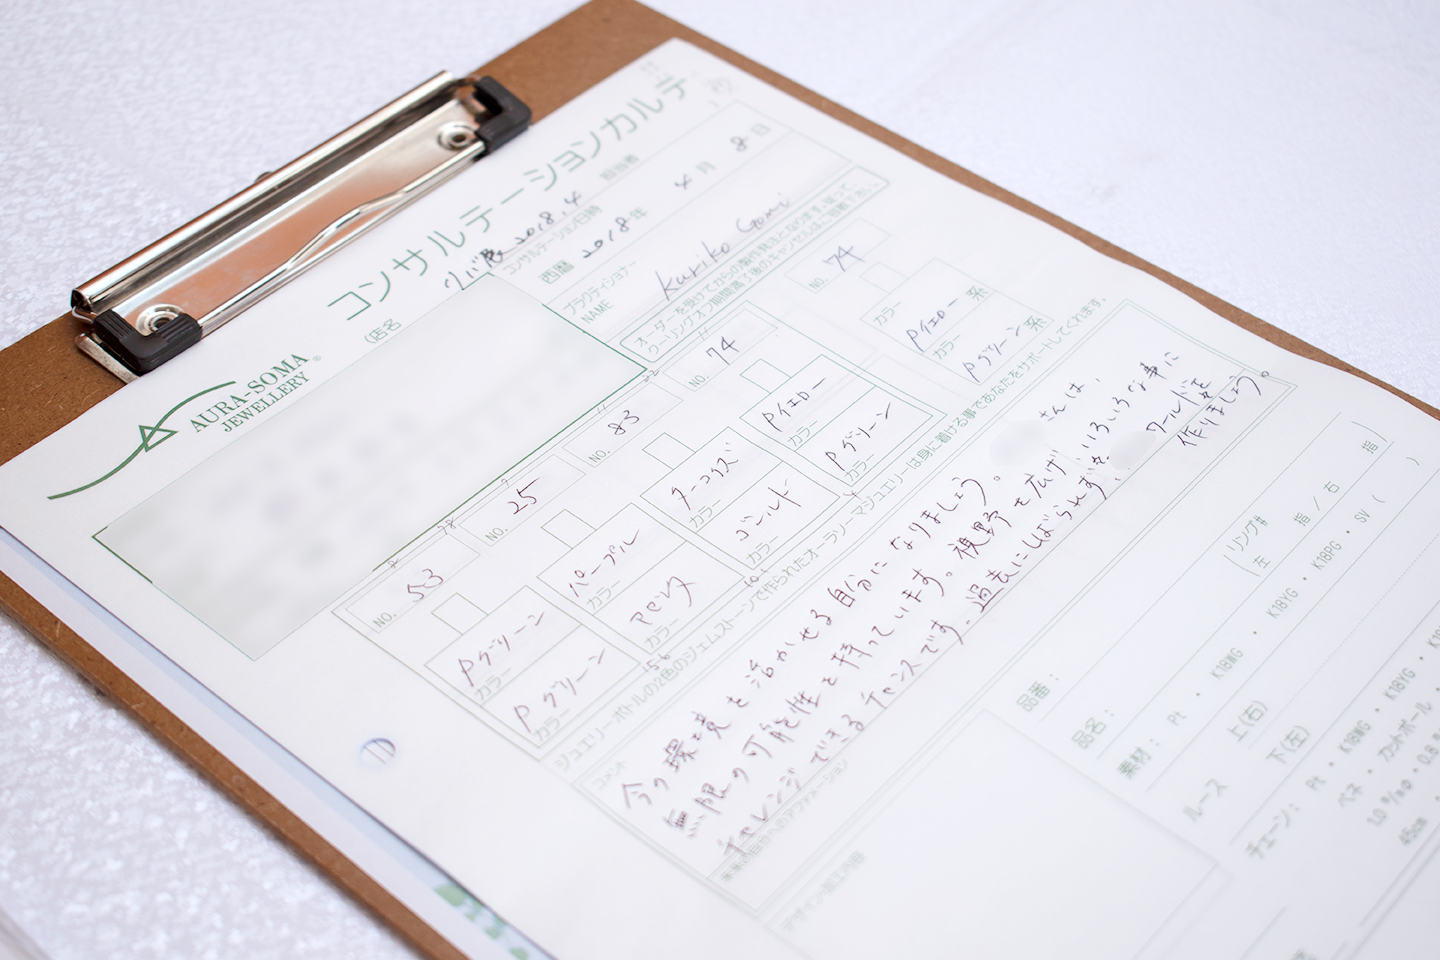 コンサルテーションカルテ
AURA-SOMA®
JEWELLERY
(店名
2018.4
コンサルテーション日時
担当者
西暦 2018年 4月 8日
プラクティショナー
NAME
Kuriko Gomi
オーダーを受けてからの製作発注となります。従って、
NO. 53
NO. 25
NO. 83
NO. 74
NO. 74
Pグリーン
カラー
Pグリーン
カラー
パープル
カラー
マゼンタ
カラー
ターコイズ
カラー
ゴールド
カラー
Pイエロー
カラー
Pグリーン
カラー
カラー
Pイエロー系
カラー
Pグリーン系
ジュエリーボトルの2色のジェムストーンで作られたオーラソーマジュエリーは身に着ける事であなたをサポートしてくれます。
コメント
今の環境を活かせる自分になりましょう。
さんは、
無限の可能性を持っています。視野を広げ、いろいろな事に
チャレンジできるチャンスです。過去にしばられず
ワールドを
作りましょう。
デザイン・加工内容
品番：
品名：
リング#
左 指 / 右 指
素材： Pt ・ K18WG ・ K18YG ・ K18PG ・ SV ( )
ルース
上(右)
下(左)
チェーン： Pt ・ K18WG ・ K18YG ・ K18
ベネ ・ カットボール
45cm